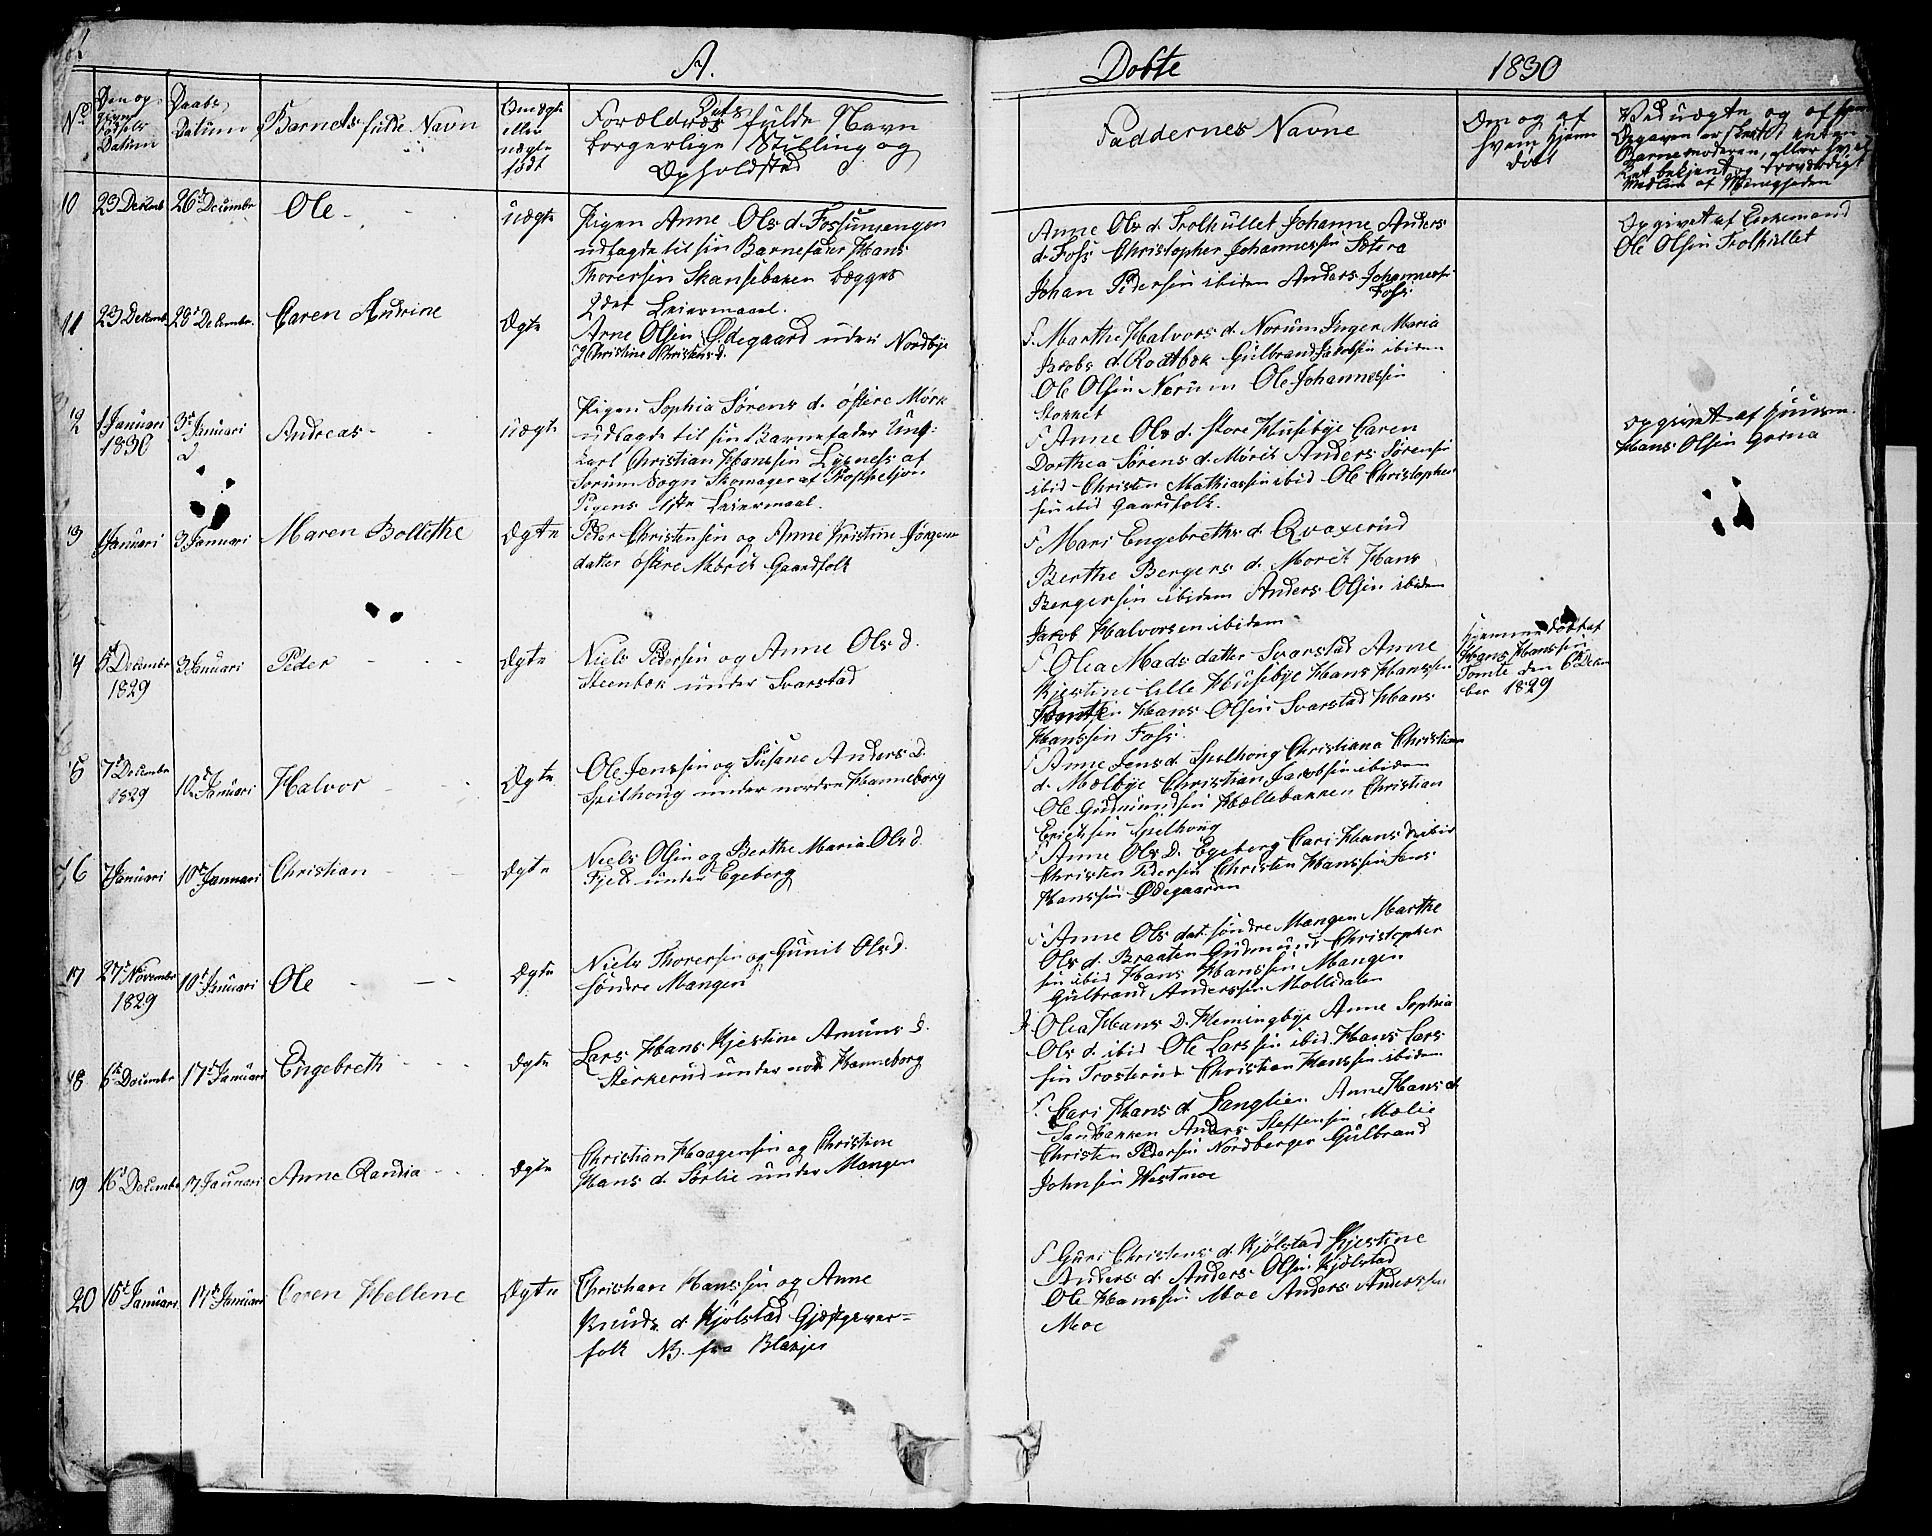 A.
Døbte
1830
No
Den opgivne Fødsels Datum
Daabs Datum
Barnets fulde Navn
Om ægte eller uægte født
Forældres fulde Navn
borgerlige Stilling og
Opholdsted
Faddernes Navne
Om og af hvem hjemme døbt
10
23 Decemb
26 Decembr
Ole
Uægte
Pigen Anne Ols d. Fossumengen
udlagde til sin Barnefader Hans
Thorersen Skansebaken begges
2det Leiermaal.
Anne Ols d. Trolhullet Johanne Anders
d. Foss Christopher Johannessen Sotera
Johan Pedersen ibidem Anders Johannessen
Foss
Opgivet af Enkemand
Ole Olsen Trolhullet
11
23 Decemb
28 Decembr.
Caren Andrine
Ægte
Arne Olsen Ødegaard under Nordbye
Christine Christens d.
F. Marthe Halvors d. Norum Inger Maria
Jacobs d. Rodtbek Gulbrand Jacobsen ibidem
Ole Olsen Norum Ole Johannessen
Stokket
12
1 Januari 1830
3 Januari
Andreas
Uægte
Pigen Sophia Sørens d. østre Mørk
udlagde til sin Barnefader Ung:
karl Christian Hanssen Lysness af
Sørum Sogn Skomager af Profession
Pigens 1ste Leiermaal.
F Anne Ols d. store Husebye Caren
Dorthea Sørens d. Mørk Anders Sørensen
ibid Christen Mathiassen ibid Ole Christopher
sen ibid Gaardfolk.
Opgivet af Huusm.
Hans Olsen
3
1 Januari
3 Januari
Maren Bollethe
Ægte
Peder Christensen og Anne Kristine Jørgens
datter østre Mørk Gaardfolk
F Mari Engebreths d. Qvaxerud
Berthe Bergers d. Morck Hans
Bergersen ibidem Anders Olsen ibidem
Jakob Halvorsen ibidem
4
5 Decembr 1829
3 Januari
Peder
Ægte
Niels Pedersen og Anne Ols d.
Steenbek under Svarstad
F Olea Mads datter Svarstad Anne
Kjestine lille Husebye Hans Hanssen
Tomte Hans Olsen Svarstad Hans
Hanssen Foss
Hjemmedøbt af
Hans Hanssen
Tomte den 6 Decem
ber 1829
5
7 Decembr 1829
10 Januari
Halvor
Ægte
Ole Jenssen og Susane Anders D.
Spilhoug under nordre Hanneborg
F Anne Jens d. Spilhoug Christiana Christian
d. Mælbye Christian Jacobsen ibidem
Ole Gudmundsen Hellebakken Christian
Ericksen Spilhoug
16
7 Januari
10 Januari
Christian
Ægte
Niels Olsen og Berthe Maria Ols d.
Fjeld under Egeberg
F Anne Ols D. Egeberg Cari Hans D. ibid
Christen Pedersen Christen Hanssen Jens
Hanssen Ødegaarden
17
27 Novembr 1829
10 Januari
Ole
Ægte
Niels Thorersen og Gunil Ols d.
søndre Mangen
F Anne Ols dat. søndre Mangen Marthe
Ols d. Braaten Gudmund Christopher
sen ibid Hans Hanssen Mangen
Gulbrand Anderssen Mollidalen
18
6 Decembr
17 Januari
Engebreth
Ægte
Lars Hans Kjestine Amuns d.
Sterkerud under nord Hanneborg
F. Olea Hans D. Flemingbye Anne Sophia
Ols d. ibid Ole Larssen ibid Hans Lars
sen Trosterud Christian Hanssen ibidem
19
16 Decembr
17 Januari
Anne Randia
Ægte
Christian Haagensen og Christine
Hans d. Sørlie under Mangen
F. Cari Hans d. Langlien Anne Hans d.
Sandbakken Anders Steffensen Mælie
Christen Pedersen Nordberger Gulbrand
Johnsen Westmoe
20
15 Januari
17 Januari
Caren Hellene
Ægte
Christian Hanssen og Anne
Knuds d. Kjølstad Gjæstgiver=
folk NB. fra Blakjer
F Guri Christens d. Kjølstad Kjestine
Anders d. Anders Olsen Kjølstad
Ole Hanssen Moe Anders Anderssen
Moe